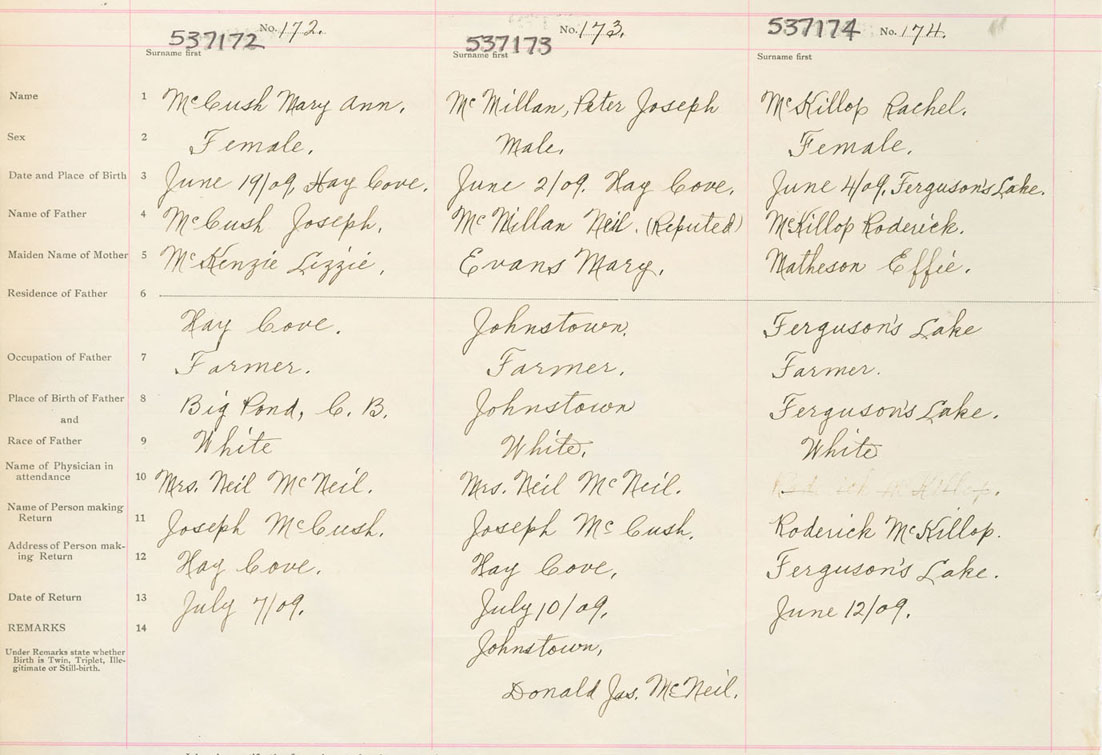 537172 No. 172. 537173 No. 173. 537174 No. 174.
Surname first Surname first Surname first
Name 1 McCush Mary Ann. McMillan, Peter Joseph McKillop Rachel.
Sex 2 Female. Male. Female.
Date and Place of Birth 3 June 19/09, Hay Cove. June 2/09. Hay Cove. June 4/09, Ferguson's Lake.
Name of Father 4 McCush Joseph. McMillan Neil. (Reputed) McKillop Roderick.
Maiden Name of Mother 5 McKenzie Lizzie. Evans Mary. Matheson Effie.
Residence of Father 6
Hay Cove. Johnstown. Ferguson's Lake
Occupation of Father 7 Farmer. Farmer. Farmer.
Place of Birth of Father 8 Big Pond, C. B. Johnstown Ferguson's Lake.
and
Race of Father 9 White White. White
Name of Physician in
attendance 10 Mrs. Neil McNeil. Mrs. Neil McNeil.
Name of Person making
Return 11 Joseph McCush. Joseph McCush. Roderick McKillop.
Address of Person mak-
ing Return 12 Hay Cove. Hay Cove. Ferguson's Lake.
Date of Return 13 July 7/09. July 10/09. June 12/09.
REMARKS 14 Johnstown,
Under Remarks state whether
Birth is Twin, Triplet, Ille-
gitimate or Still-birth.
Donald Jas. McNeil.